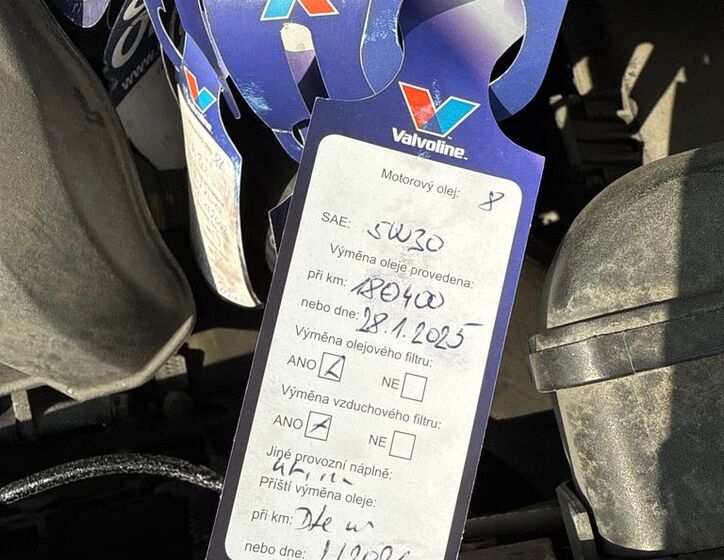 Valvoline
Motorový olej: 8
SAE: 5W30
Výměna oleje provedena:
při km: 180400
nebo dne: 28.1.2025
Výměna olejového filtru:
ANO NE
Výměna vzduchového filtru:
ANO NE
Jiné provozní náplně:
Příští výměna oleje:
při km: Dle
nebo dne: